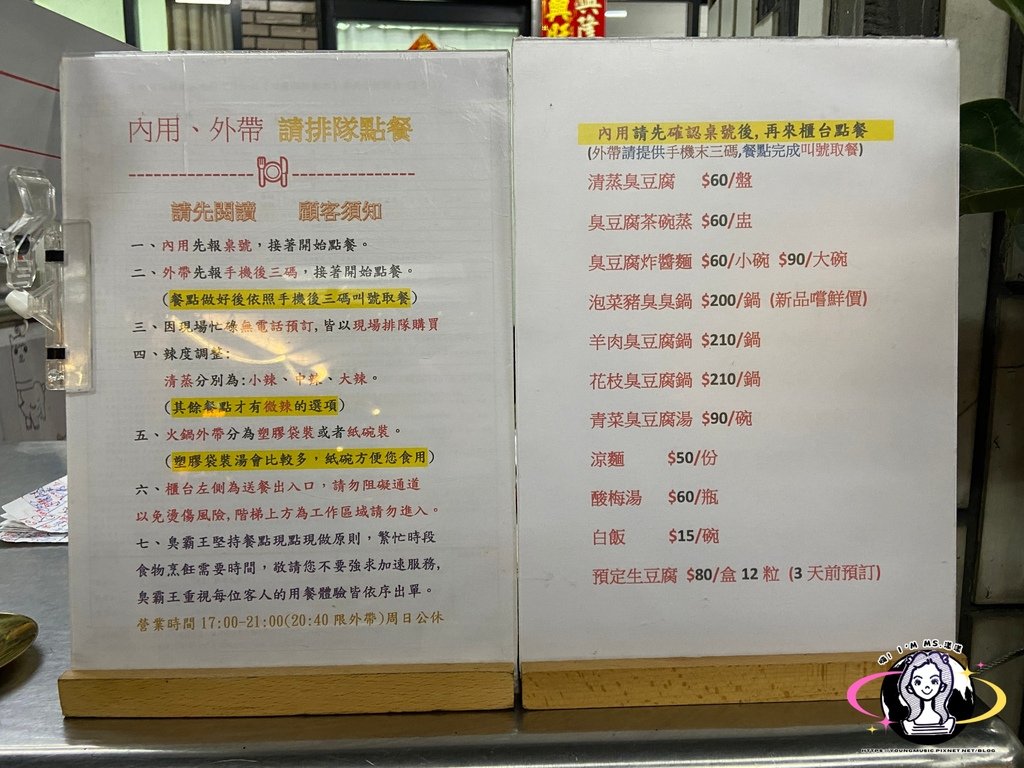 內用、外帶 請排隊點餐
請先閱讀 顧客須知
一、內用先報桌號，接著開始點餐。
二、外帶先報手機後三碼，接著開始點餐。
(餐點做好後依照手機後三碼叫號取餐)
三、因現場忙碌無電話預訂,皆以現場排隊購買
四、辣度調整:
清蒸分別為:小辣、中辣、大辣。
(其餘餐點才有微辣的選項)
五、火鍋外帶分為塑膠袋裝或者紙碗裝。
(塑膠袋裝湯會比較多，紙碗方便您食用)
六、櫃台左側為送餐出入口，請勿阻礙通道
以免燙傷風險,階梯上方為工作區域請勿進入。
七、臭霸王堅持餐點現點現做原則，繁忙時段
食物烹飪需要時間，敬請您不要強求加速服務,
臭霸王重視每位客人的用餐體驗皆依序出單。
營業時間17:00-21:00(20:40限外帶)周日公休
內用請先確認桌號後,再來櫃台點餐
(外帶請提供手機末三碼,餐點完成叫號取餐)
清蒸臭豆腐 $60/盤
臭豆腐茶碗蒸 $60/盅
臭豆腐炸醬麵 $60/小碗 $90/大碗
泡菜豬臭臭鍋 $200/鍋 (新品嚐鮮價)
羊肉臭豆腐鍋 $210/鍋
花枝臭豆腐鍋 $210/鍋
青菜臭豆腐湯 $90/碗
涼麵 $50/份
酸梅湯 $60/瓶
白飯 $15/碗
預定生豆腐 $80/盒 12 粒 (3 天前預訂)
HTTPS://YOUNGMUSIC.PIXNET.NET/BLOG